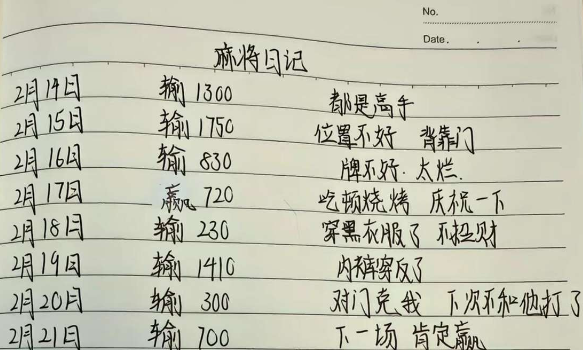 No.
Date . . .
麻将日记
2月14日 输 1300 都是高手
2月15日 输 1750 位置不好 背靠门
2月16日 输 830 牌不好. 太烂.
2月17日 赢 720 吃顿烧烤 庆祝一下
2月18日 输 230 穿黑衣服了 不招财
2月19日 输 1410 内裤穿反了
2月20日 输 300 对门克我 下次不和他打了
2月21日 输 700 下一场 肯定赢